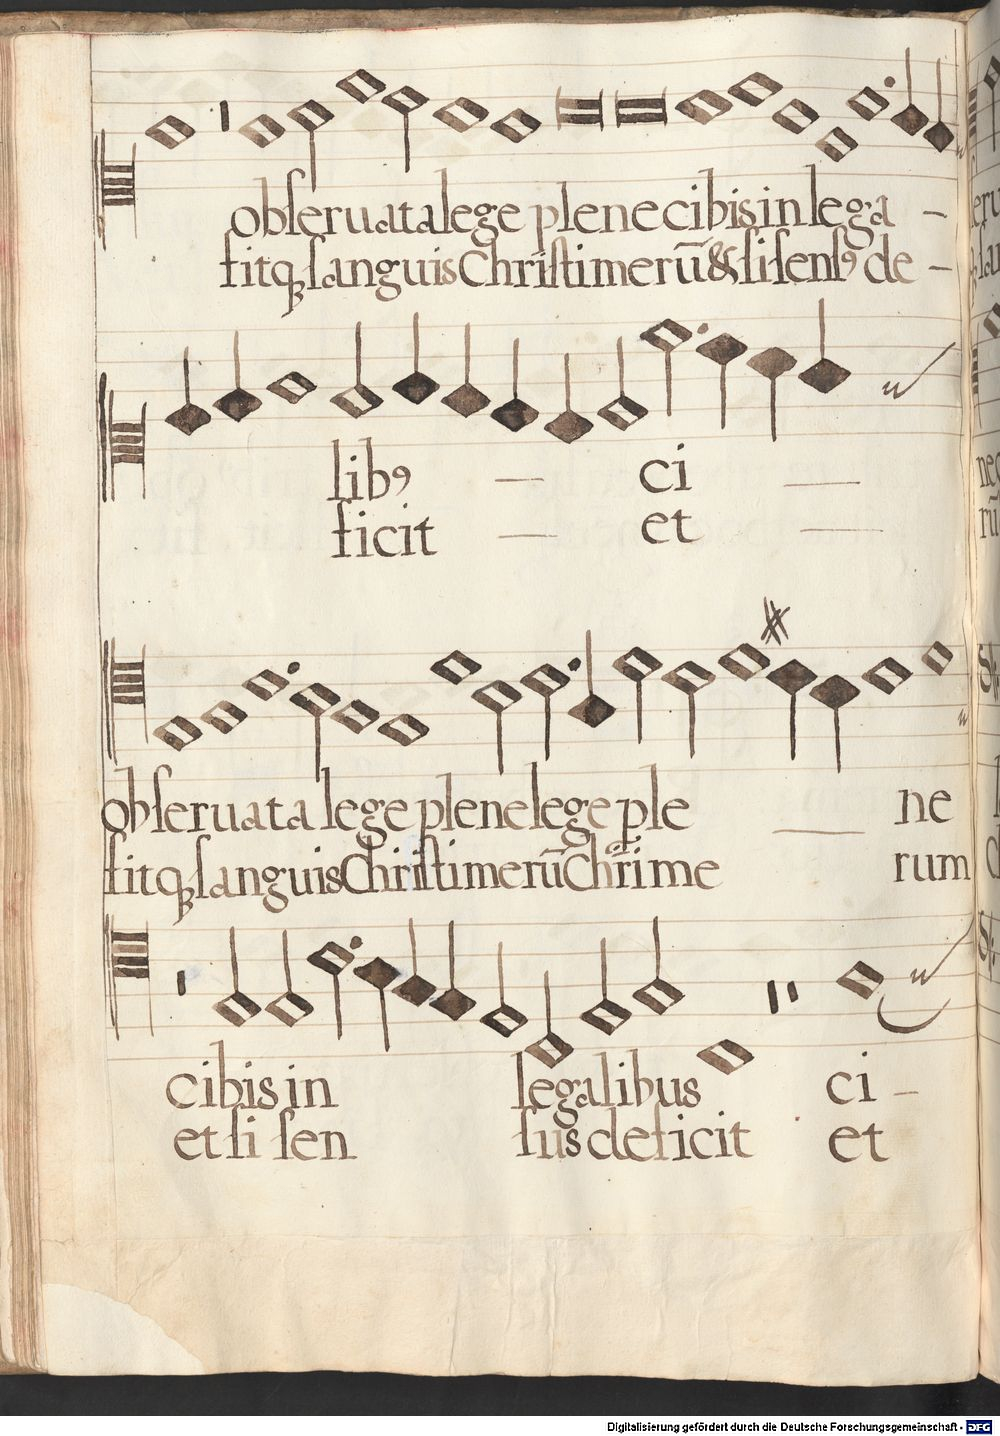 obseruata lege plene cibis in lega -
fitqꝫ sanguis Christi merū & si sensꝰ de -
libꝰ — ci —
ficit — et —
obseruata lege plene lege ple — ne
fitqꝫ sanguis Christi merū Chr̄i me rum
cibis in legalibus ci -
et si sen sus deficit et
Digitalisierung gefördert durch die Deutsche Forschungsgemeinschaft - DFG